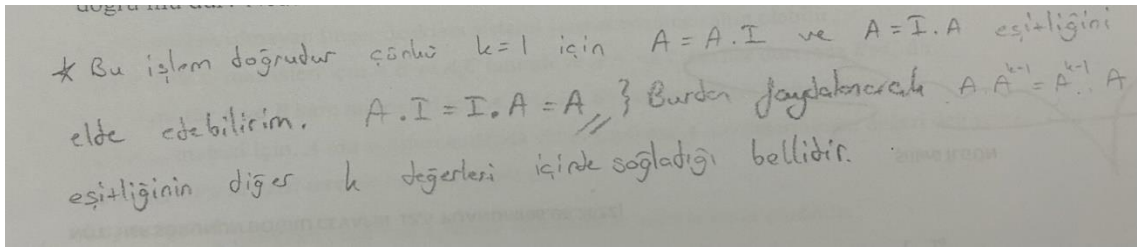 * Bu işlem doğrudur çünkü k=1 için A = A.I ve A = I.A eşitliğini
elde edebilirim. A.I = I.A = A,, } Burdan faydalanarak A.A^{k-1} = A^{k-1}.A
eşitliğinin diğer k değerleri içinde sağladığı bellidir.